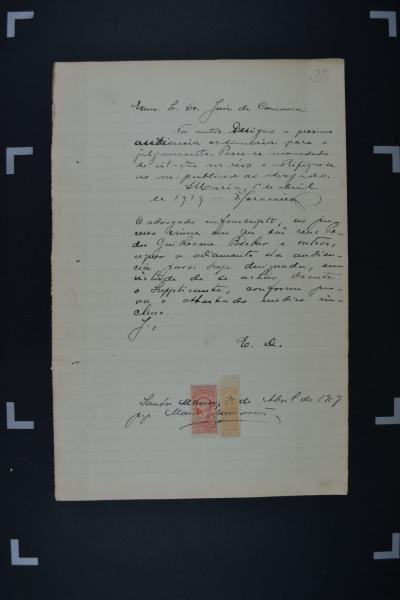 37
Exmo. Sr. Dr. Juiz da Comarca
Nos autos. Designo a proxima
audiencia ordinaria para o
julgamento. Passe-se mandado
de citação aos réos e notifique-se
ao m. publico e ao advogado.
S. Maria, 1º de abril
de 1919 —
O advogado infrascripto, no pro-
cesso crime em que são réos Pe-
dro Guilherme Becker e outros,
requer o adiamento da audien-
cia para hoje designada, em
virtude de se achar doente
o supplicante, conforme pro-
va o attestado medico in-
cluso.
J.,
E. D.
Santa Maria, 1º de Abril de 1919
pp.